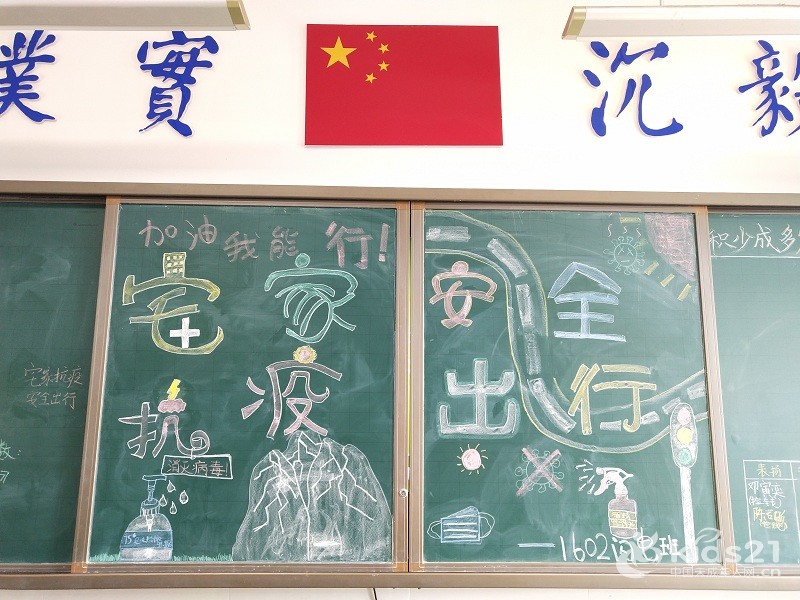 業 實 沉 毅
加油我能行!
宅家
抗疫
消灭病毒!
75°
安全
出行
1602
班
宅家抗疫
安全出行
积少成多
数:
表扬
kids21
中国未成年人网.cn